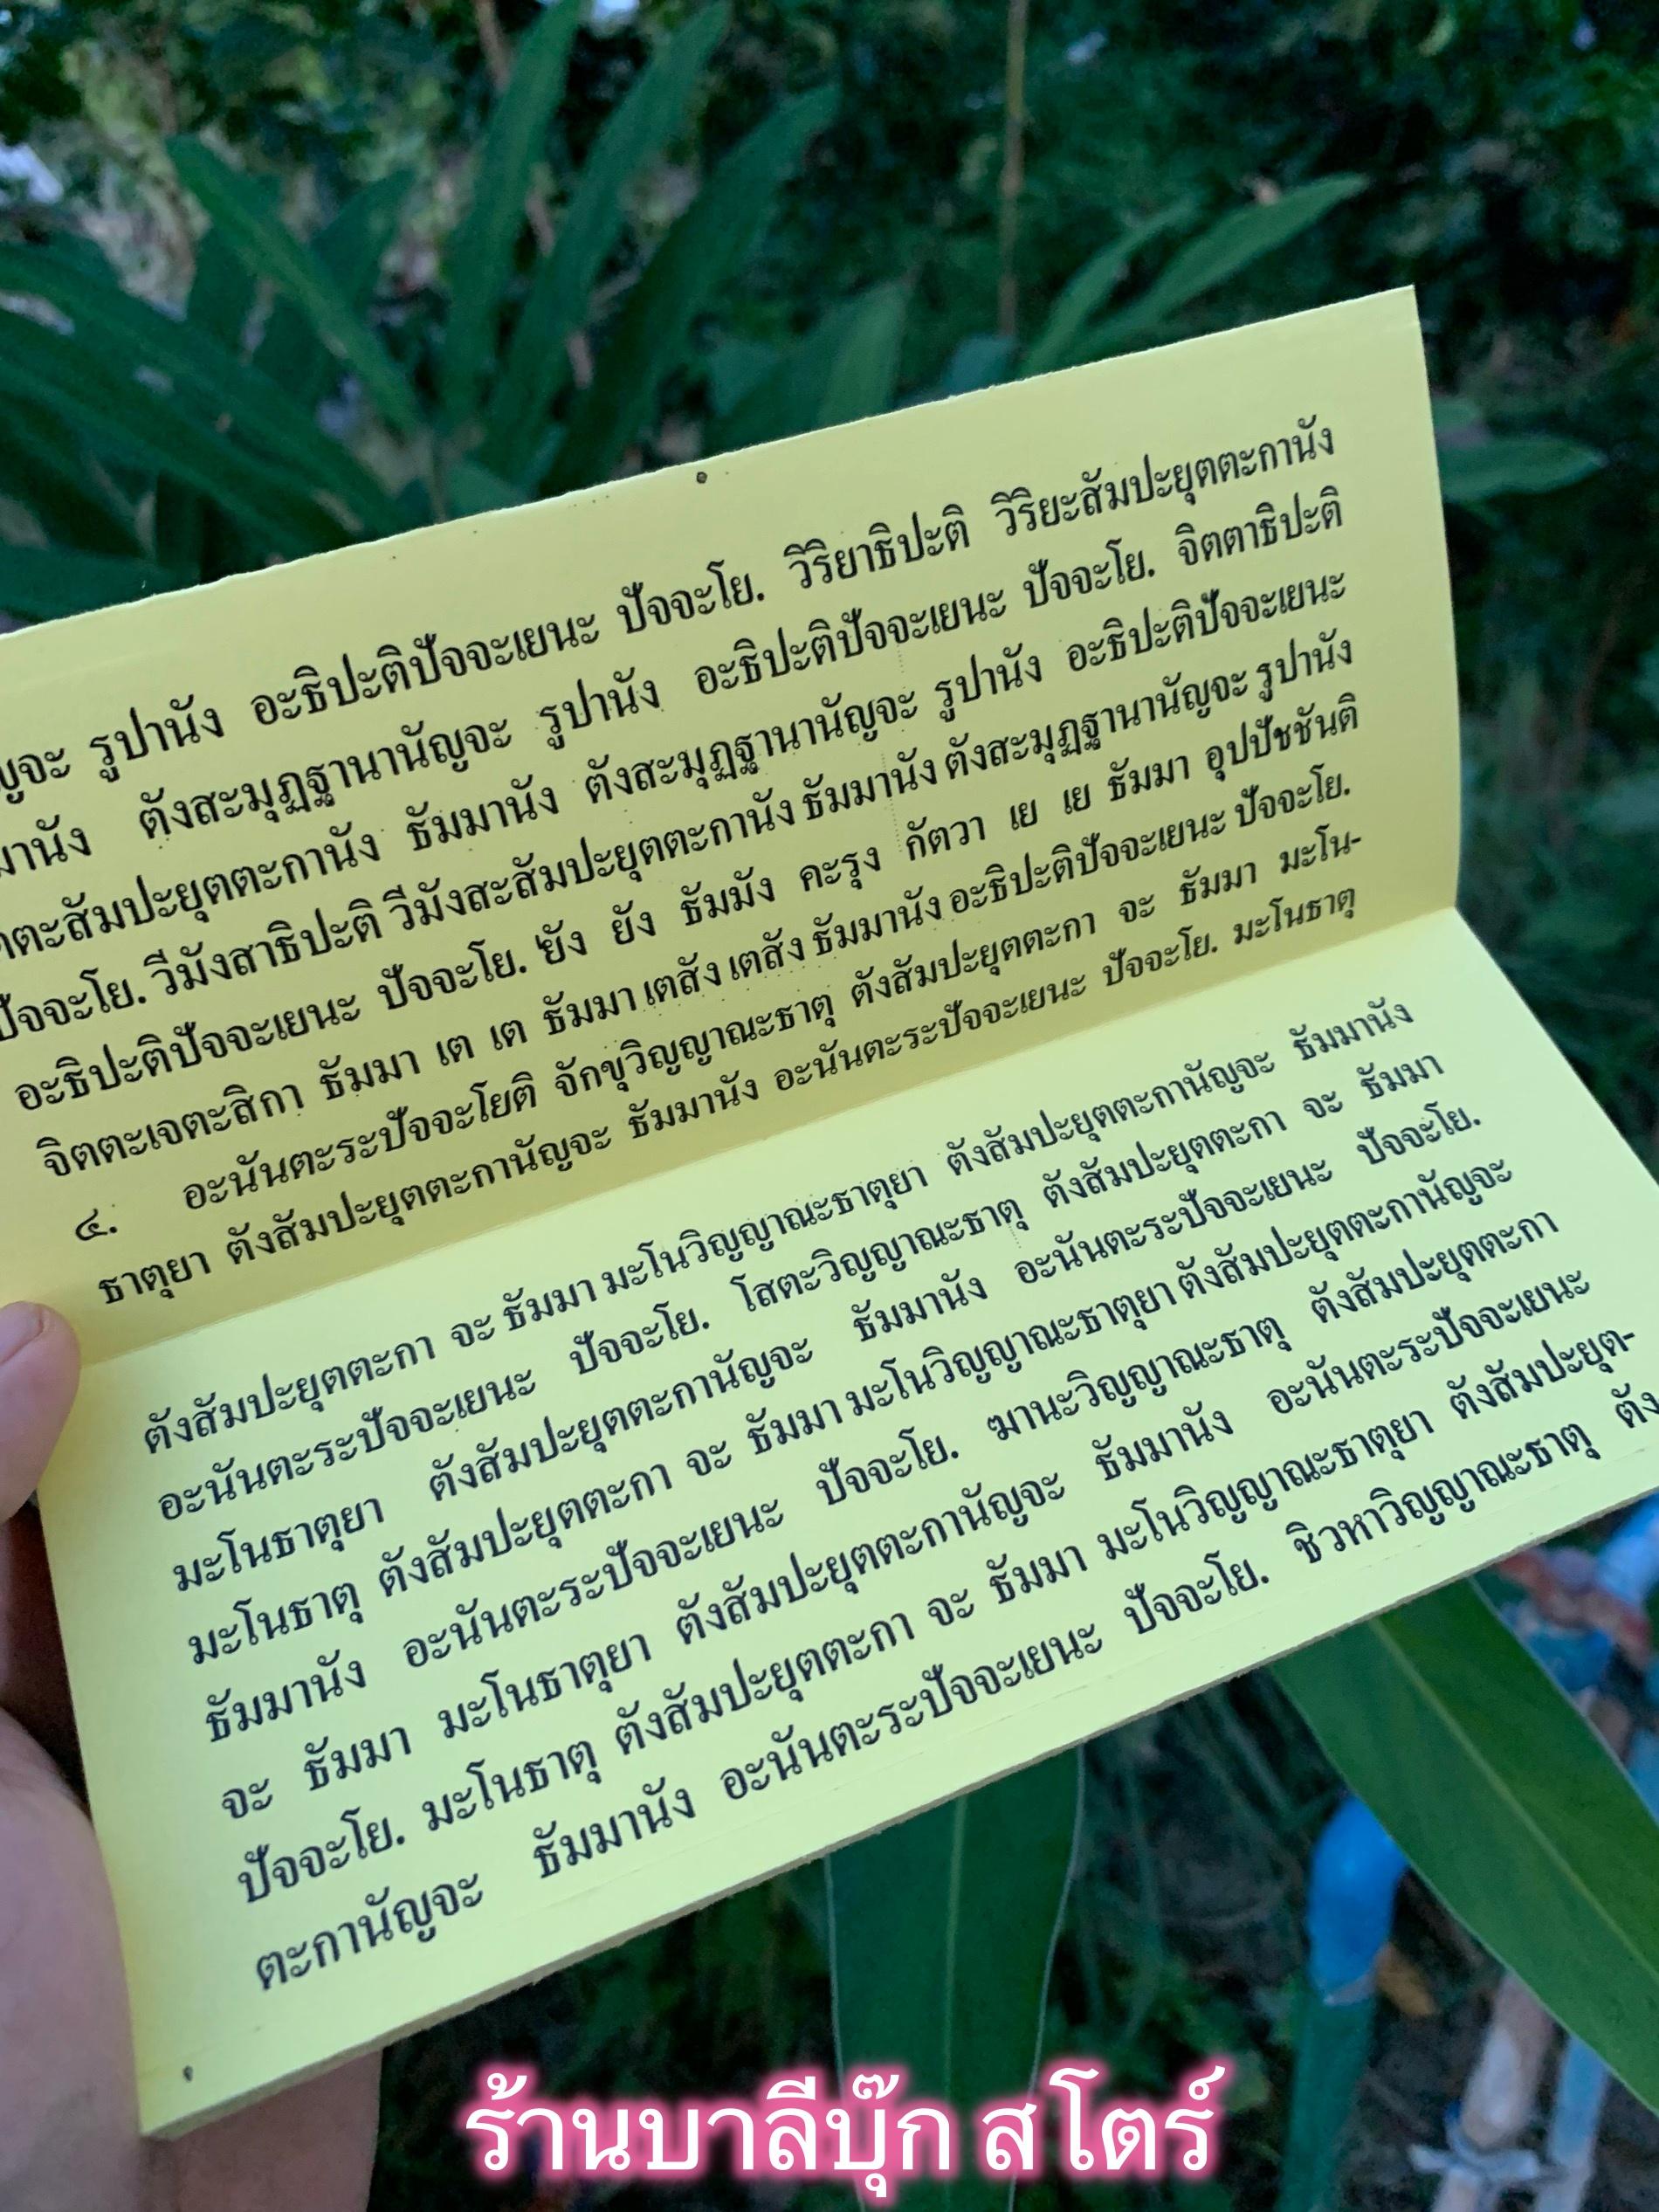 รูปานัง อะธิปะติปัจจะเยนะ ปัจจะโย. วิริยาธิปะติ วิริยะสัมปะยุตตะกานัง
ตังสะมุฏฐานานัญจะ รูปานัง อะธิปะติปัจจะเยนะ ปัจจะโย. จิตตาธิปะติ
ธัมมานัง ตังสะมุฏฐานานัญจะ รูปานัง อะธิปะติปัจจะเยนะ
วีมังสาธิปะติ วีมังสะสัมปะยุตตะกานัง ธัมมานัง ตังสะมุฏฐานานัญจะ รูปานัง
อะธิปะติปัจจะเยนะ ปัจจะโย. ยัง ยัง ธัมมัง คะรุง กัตวา เย เย ธัมมา อุปปัชชันติ
จิตตะเจตะสิกา ธัมมา เต เต ธัมมา เตสัง เตสัง ธัมมานัง อะธิปะติปัจจะเยนะ ปัจจะโย.
๔. อะนันตะระปัจจะโยติ จักขุวิญญาณะธาตุ ตังสัมปะยุตตะกา จะ ธัมมา มะโน-
ธาตุยา ตังสัมปะยุตตะกานัญจะ ธัมมานัง อะนันตะระปัจจะเยนะ ปัจจะโย. มะโนธาตุ
ตังสัมปะยุตตะกา จะ ธัมมา มะโนวิญญาณะธาตุยา ตังสัมปะยุตตะกานัญจะ ธัมมานัง
อะนันตะระปัจจะเยนะ ปัจจะโย. โสตะวิญญาณะธาตุ ตังสัมปะยุตตะกา จะ ธัมมา
มะโนธาตุยา ตังสัมปะยุตตะกานัญจะ ธัมมานัง อะนันตะระปัจจะเยนะ ปัจจะโย.
มะโนธาตุ ตังสัมปะยุตตะกา จะ ธัมมา มะโนวิญญาณะธาตุยา ตังสัมปะยุตตะกานัญจะ
ธัมมานัง อะนันตะระปัจจะเยนะ ปัจจะโย. ฆานะวิญญาณะธาตุ ตังสัมปะยุตตะกา
จะ ธัมมา มะโนธาตุยา ตังสัมปะยุตตะกานัญจะ ธัมมานัง อะนันตะระปัจจะเยนะ
ปัจจะโย. มะโนธาตุ ตังสัมปะยุตตะกา จะ ธัมมา มะโนวิญญาณะธาตุยา ตังสัมปะยุต-
ตะกานัญจะ ธัมมานัง อะนันตะระปัจจะเยนะ ปัจจะโย. ชิวหาวิญญาณะธาตุ ตัง
ร้านบาลีบุ๊ก สโตร์